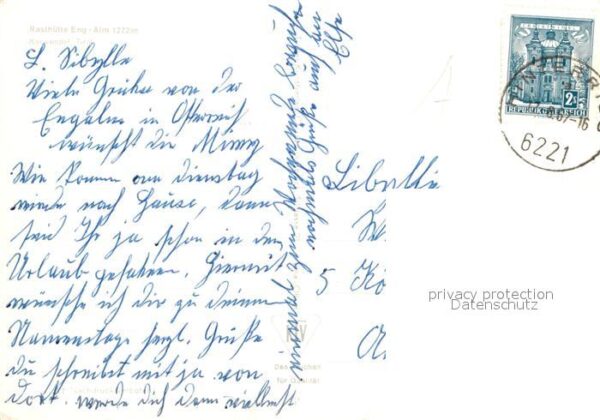 Rasthütte Eng-Alm 1272m
L. Sibylle
Viele Grüße von der
Engalm in Österreich
wünscht die Mimy
Wir kommen am dienstag
wieder nach Hause, dann
seid Ihr ja schon in den
Urlaub gefahren. Hiermit
wünsche ich dir zu deinem
Namenstage herzl. Grüße
du schreibst mir ja von
dort. werde dich dann vielleicht
einmal zum
nochmals Grüße auch an
Sibylle
W
5 Kö
A
REPUBLIK ÖSTERREICH
6221
privacy protection
Datenschutz